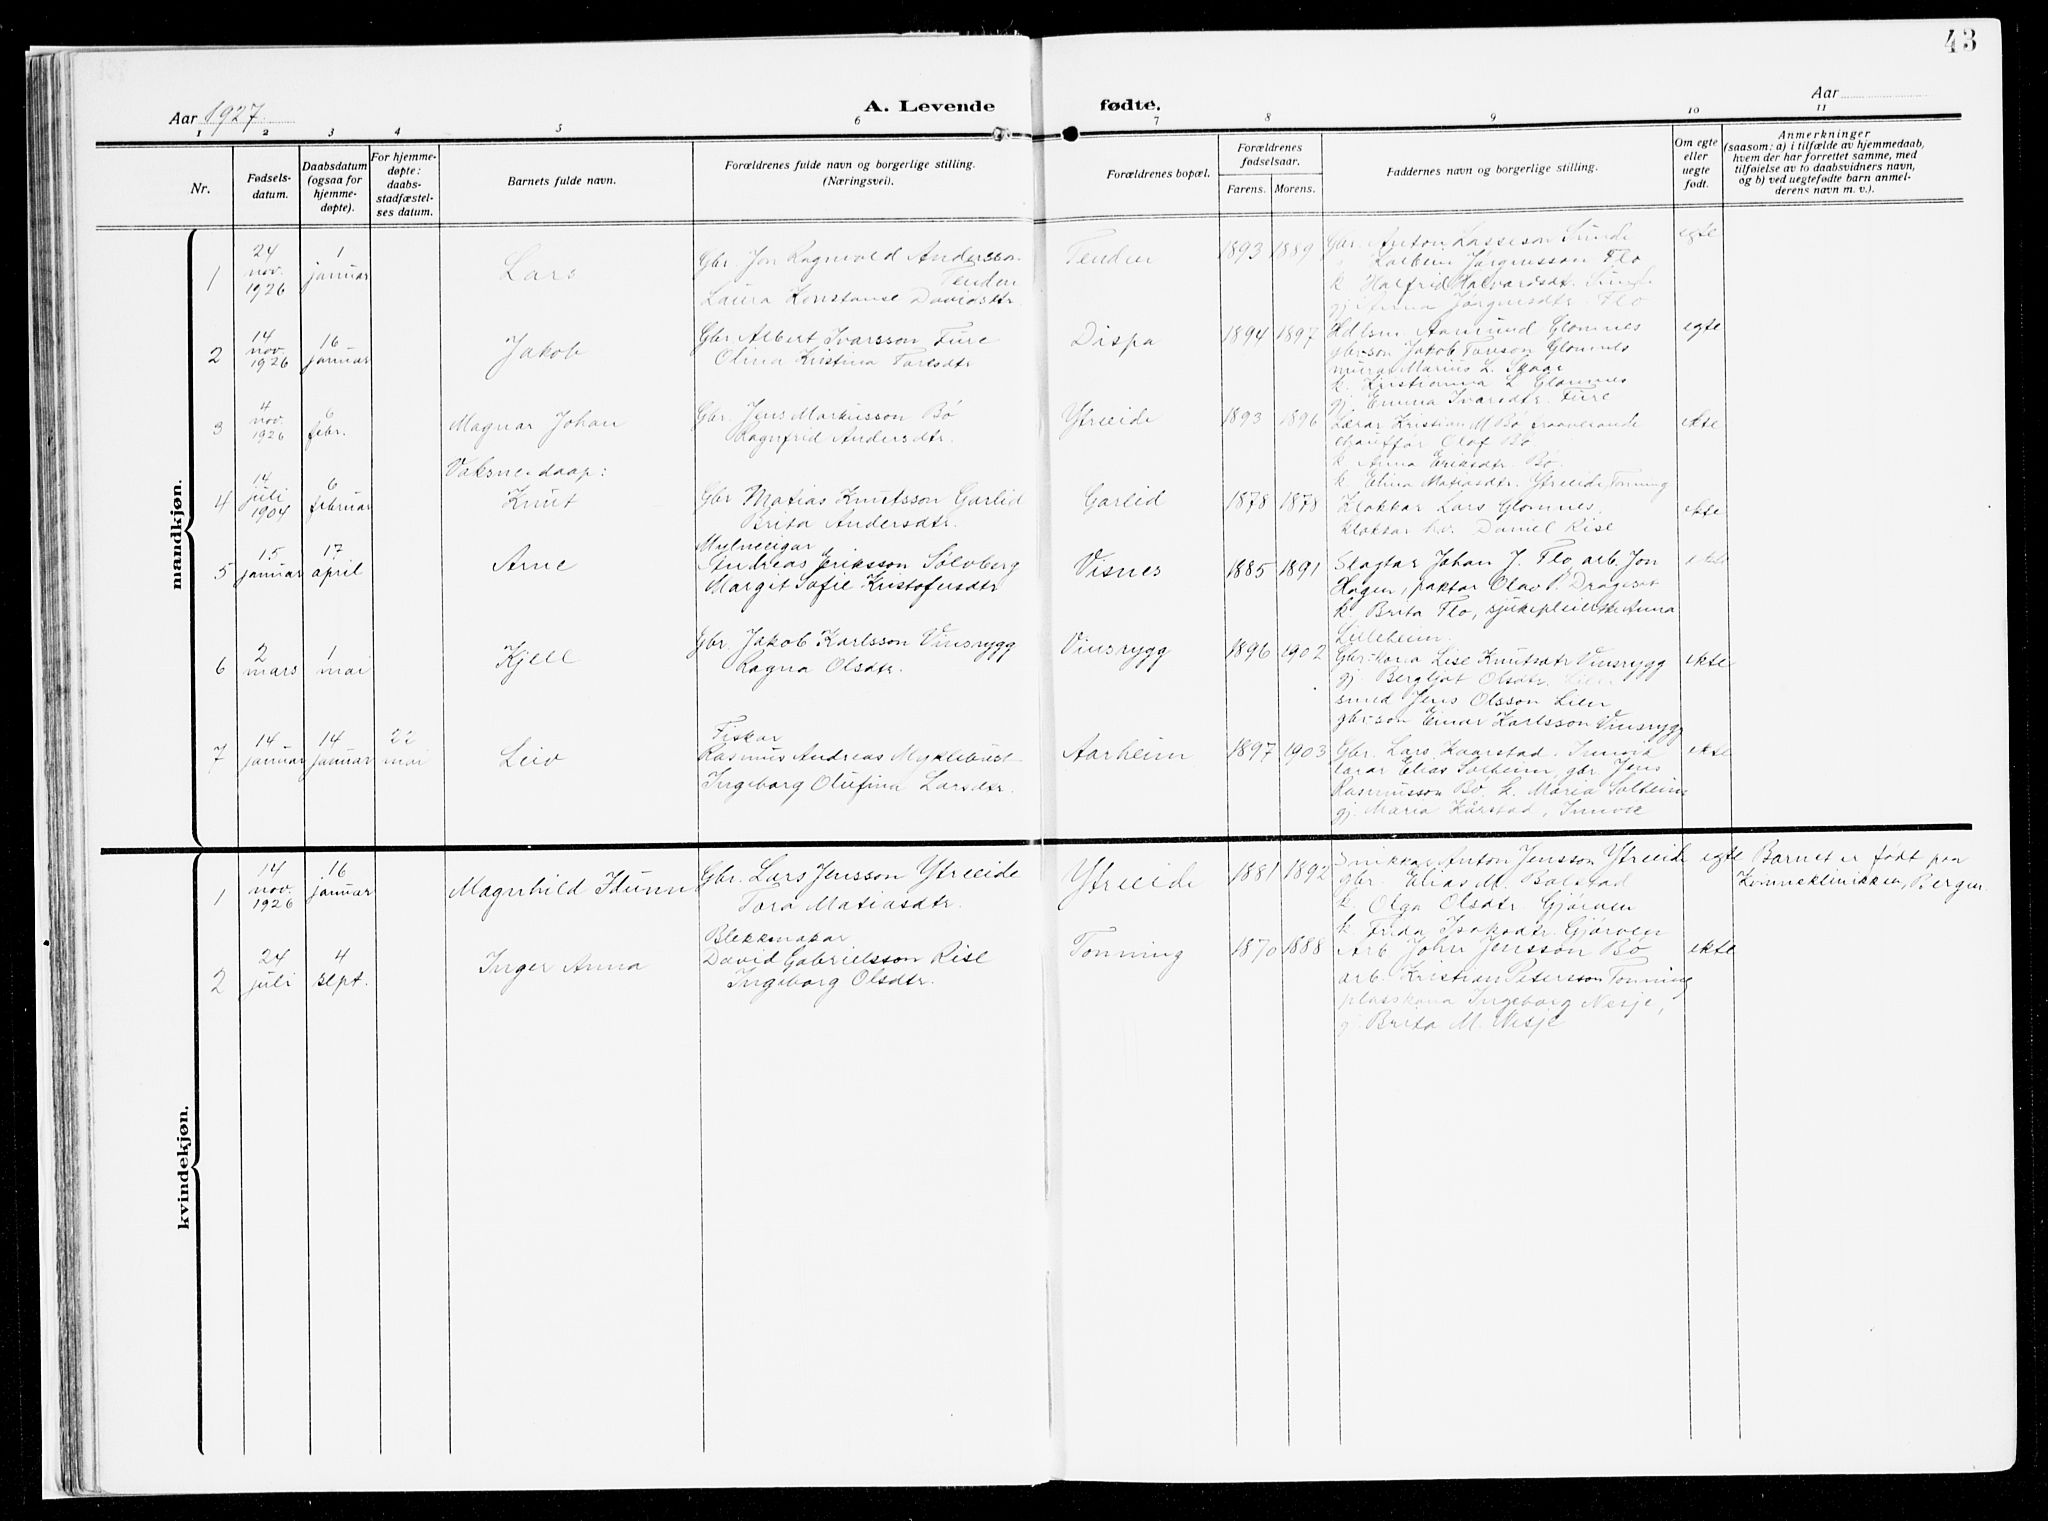 43
Aar 1927
A. Levende fødte.
Aar
1 2 3 4 5 6 7 8 9 10 11
Nr.
Fødsels-
datum.
Daabsdatum
(ogsaa for
hjemme-
døpte).
For hjemme-
døpte:
daabs-
stadfæstel-
ses datum.
Barnets fulde navn.
Forældrenes fulde navn og borgerlige stilling.
(Næringsvei).
Forældrenes bopæl.
Forældrenes
fødselsaar.
Farens. Morens.
Faddernes navn og borgerlige stilling.
Om egte
eller
uegte
født.
Anmerkninger
(saasom: a) i tilfælde av hjemmedaab,
hvem der har forrettet samme, med
tilføielse av to daabsvidners navn,
og b) ved uegtefødte barn anmel-
derens navn m. v.).
mandkjøn.
1
24
nov.
1926
1
januar
Lars
Gbr. Jon Ragnvald Anderssen
Tenden
Laura Konstanse Davidsdtr.
Tenden
1893 1889
Gbr. Anton Lassesson Sunde
Kolbein Jørgensson Flo
k. Halfrid Halvardsdt. Sunde
gj. Anna Jørgensdtr. Flo
egte
2
14
nov.
1926
16
januar
Jakob
Gbr Albert Ivarsson Fure
Olina Kristina Taresdtr
Dispa
1894 1897
Hdlsm. Aamund Glomnes
gbr-son Jakob Tareson Glomnes
murar Marius L. Skaar
k. Kristianna L Glomnes
gj. Emma Ivarsdtr. Fure
egte
3
4
nov.
1926
6
febr.
Magnar Johan
Gbr. Jens Markusson Bø
Ragnfrid Andersdtr.
Ytreeide
1893 1896
Lærar Kristian M Bø fraaverande
chauffør Olaf Bø
k. Anna Eriksdtr. Bø.
k. Elina Matiasdtr. Ytreeide Tonning
ekte
4
14
juli
1904
6
februar
Vaksne-daap:
Knut
Gbr Matias Knutsson Garlid
Brita Andersdtr.
Garlid
1878 1878
Klokkar Lars Glomnes.
klokkar h.v. Daniel Rise
ekte
5
15
januar
17
april
Arne
Mylneeigar
Andreas Eriksson Sølvberg
Margit Sofie Kristofersdtr
Visnes
1885 1891
Slagtar Johan J. Flo, arb. Jon
Hagen, paktar Olav P. Drageset
k Brita Flo, sjukepleierske Anna
Lilleheim.
ekte
6
2
mars
1
mai
Kjell
Gbr Jakob Karlsson Vinsrygg
Ragna Olsdtr.
Vinsrygg
1896 1902
Gbr-kona Lise Knutsdtr Vinsrygg
gj. Bergljot Olsdtr.
smed Jens Olsson Lien
gbr-son Einar Karlsson Vinsrygg
ekte
7
14
januar
14
januar
22
mai
Leiv
Fiskar
Rasmus Andreas Myklebust
Ingeborg Olufina Larsdtr.
Aarheim
1897 1903
Gbr. Lars Kaarstad. Innvik
lærar Elias Solheim, gbr Jens
Rasmusson Bø. k. Maria Solheim
gj. Maria Kårstad, Innvik
ekte
kvindekjøn.
1
14
nov.
1926
16
januar
Magnhild Idunn
Gbr. Lars Jensson Ytreeide
Tora Matiasdtr.
Ytreeide
1881 1892
Snikkar Anton Jensson Ytreeide
gbr. Elias M. Bolstad
k. Olga Olsdtr Gjørven
k Frida Isaksdtr. Gjørven
egte
Barnet er født paa
Kvinneklinikken, Bergen.
2
24
juli
4
sept.
Inger Anna
Blekkmakar
David Gabrielsson Rise
Ingeborg Olsdtr.
Tonning
1870 1888
Arb John Jensson Bø
arb. Kristian Petersson Tonning
plasskona Ingeborg Nesje,
gj. Brita M. Nesje
ekte